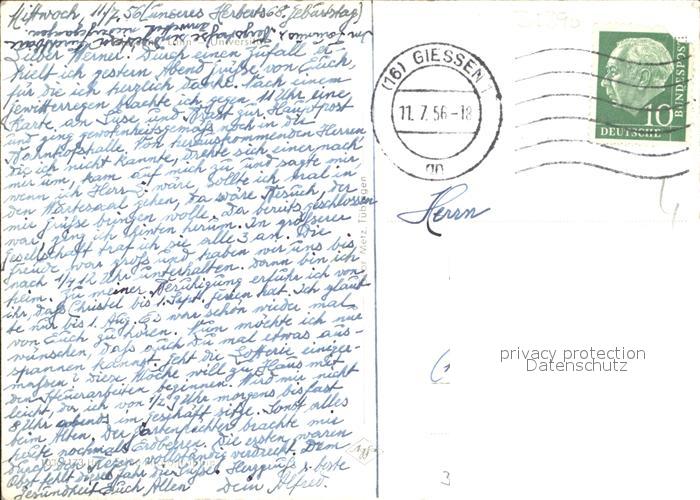 Mittwoch, 11.7.56 (unseres Herberts 68. Gebürtstag)
Lieber Werner! Durch einen Zufall er-
hielt ich gestern Abend Grüße von Euch,
für die ich herzlich danke. Nach einem
Gewitterregen brachte ich gegen 11 Uhr eine
Karte an Luse und zur Hauptpost
und ging gewohnheitsgemäß noch in die
Bahnhofshalle. Von herauskommenden Herren
die ich nicht kannte, drehte ich einer nach
mir um, kam auf mich zu und sagte mir,
wenn ich Herr G. wäre, sollte ich mal in
den Wartesaal gehen, da wäre Besuch, der
mir Grüße bringen wolle. Da bereits geschlossen
war, ging ich hinten herum. In größerer
Gesellschaft traf ich sie alle 3 an. Die
Freude war groß und haben wir uns bis
nach 1/4 12 Uhr unterhalten. Dann bin ich
heim. Zu meiner Beruhigung erfuhr ich von
ihr, daß Christel bis 1. Sept. Ferien hat. Ich glaub
te nur bis 1. Aug. Es war schön wieder mal
von Euch zu hören. Nun möchte ich nur
wünschen, daß auch du mal etwas aus-
spannen kannst. Geht die Lotterie einiger-
maßen? Diese Woche will zu Haus mit
den Steuerarbeiten beginnen. Wird mir nicht
leicht, da ich von 1/2 9 Uhr morgens bis fast
8 Uhr abends im Geschäft sitze. Sonst alles
beim Alten. Der Gartenpächter brachte mir
heute nochmals Erdbeeren. Die ersten waren
durch den Regen vollständig verdreckt. Dem
Obst fehlt dieses Jahr die Süße. Herzgruß u. beste
Gesundheit Euch Allen Dein Alfred.
Metz, Tübingen
(16) GIESSEN 1
11. 7. 56 - 18
DEUTSCHE
BUNDESPOST
10
Herrn
privacy protection
Datenschutz